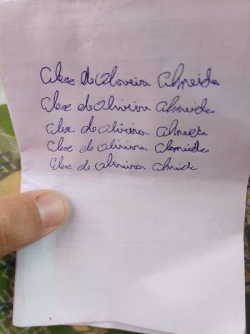 Alex de Oliveira Almeida
Alex de Oliveira Almeida
Alex de Oliveira Almeida
Alex de Oliveira Almeida
Alex de Oliveira Almeida